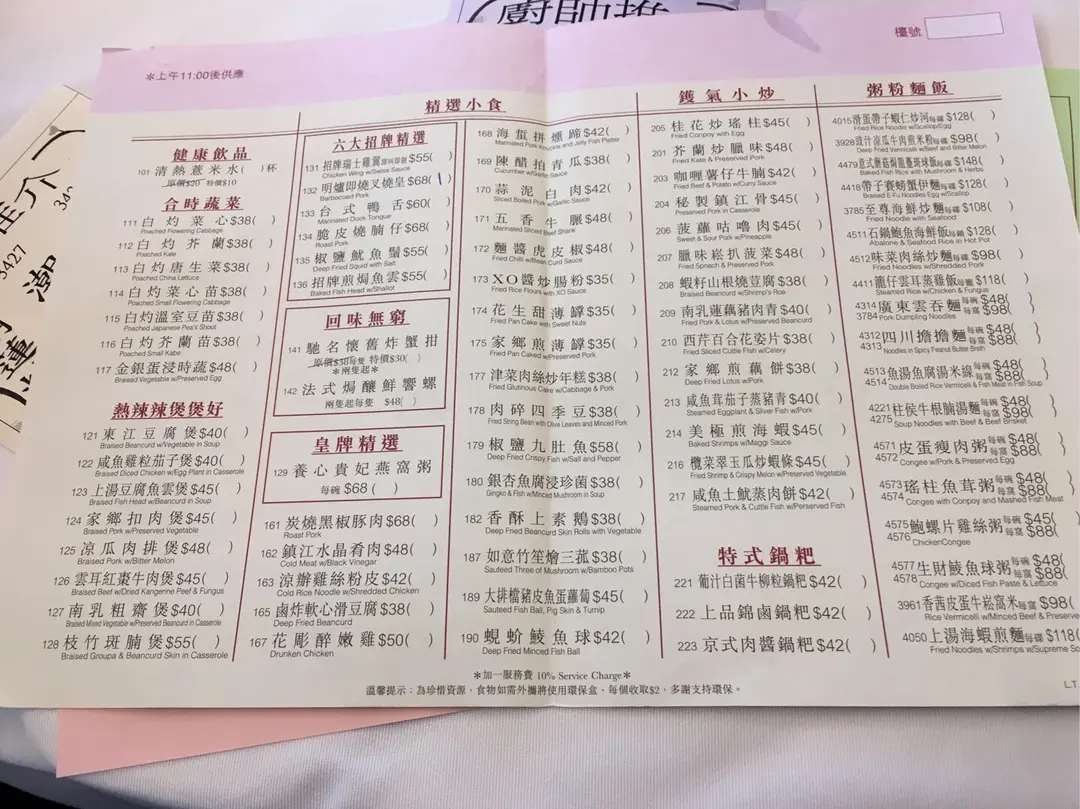 廚師推
檯號
＊上午11:00後供應
精選小食
鑊氣小炒
粥粉麵飯
健康飲品
101 清熱薏米水( )杯
原價$20 特價$10
合時蔬菜
111 白灼菜心$38( )
Poached Flowering Cabbage
112 白灼芥蘭$38( )
Poached Kale
113 白灼唐生菜$38( )
Poached China Lettuce
114 白灼菜心苗$38( )
Poached Small Flowering Cabbage
115 白灼溫室豆苗$38( )
Poached Japanese Pea's Shoot
116 白灼芥蘭苗$38( )
Poached Small Kabe
117 金銀蛋浸時蔬$48( )
Braised Vegetable w/Preserved Egg
熱辣辣煲煲好
121 東江豆腐煲$40( )
Braised Beancurd w/Vegetable in Soup
122 咸魚雞粒茄子煲$40( )
Braised Diced Chicken w/Egg Plant in Casserole
123 上湯豆腐魚雲煲$45( )
Braised Fish Head w/Beancurd in Soup
124 家鄉扣肉煲$45( )
Braised Pork w/Preserved Vegetable
125 凉瓜肉排煲$48( )
Braised Pork w/Bitter Melon
126 雲耳紅棗牛肉煲$45( )
Braised Beef w/Dried Kangerine Peef & Fungus
127 南乳粗齋煲$40( )
Braised Mixed Vegetable w/Preserved Beancurd in Casserole
128 枝竹斑腩煲$55( )
Braised Groupa & Beancurd Skin in Casserole
六大招牌精選
131 招牌瑞士雞翼 $55( )
Chicken Wing w/Swiss Sauce
132 明爐即燒叉燒皇$68( )
Barbecued Pork
133 台式鴨舌$60( )
Marinated Duck Tongue
134 脆皮燒腩仔$68( )
Roast Pork
135 椒鹽魷魚鬚$55( )
Deep Fried Squid with Salt
136 招牌煎焗魚雲$55( )
Baked Fish Head w/Shallot
回味無窮
141 馳名懷舊炸蟹拑
原價$38每隻 特價$30( )
＊兩隻起＊
142 法式焗釀鮮響螺
兩隻起每隻 $48( )
皇牌精選
129 養心貴妃燕窩粥
每碗 $68 ( )
161 炭燒黑椒豚肉$68( )
Roast Pork
162 鎮江水晶肴肉$48( )
Cold Meat w/Black Vinegar
163 涼辦雞絲粉皮$42( )
Cold Rice Noodle w/Shredded Chicken
165 鹵炸軟心滑豆腐$38( )
Deep Fried Beancurd
167 花彫醉嫩雞$50( )
Drunken Chicken
168 海蜇拼燻蹄$42( )
Marinated Pork Knuckle and Jelly Fish Platter
169 陳醋拍青瓜$38( )
Cucumber w/Garlic Sauce
170 蒜泥白肉$42( )
Sliced Boiled Pork w/Garlic Sauce
171 五香牛𦟌$48( )
Marinated Sliced Beef Shank
172 麵醬虎皮椒$48( )
Fried Chilli w/Bean Curd Sauce
173 XO醬炒腸粉$35( )
Fried Rice Flours with XO Sauce
174 花生甜薄罉$35( )
Fried Pan Cake with Sweet Nuts
175 家鄉煎薄罉$35( )
Fried Pan Caked w/Preserved Pork
177 津菜肉絲炒年糕$38( )
Fried Glutinous Cake w/Cabbage & Pork
178 肉碎四季豆$38( )
Fried String Bean with Olive Leaves and Minced Pork
179 椒鹽九肚魚$58( )
Deep Fried Crispy Fish w/Salt and Pepper
180 銀杏魚腐浸珍菌$38( )
Gingko & Fish w/Minced Mushroom in Soup
182 香酥上素鵝$38( )
Deep Fried Beancurd Skin Rolls with Vegetable
187 如意竹笙燴三菰$38( )
Sauteed Three of Mushroom w/Bamboo Pots
189 大排檔豬皮魚蛋蘿蔔$45( )
Sauteed Fish Ball, Pig Skin & Turnip
190 蜆蚧鯪魚球$42( )
Deep Fried Minced Fish Ball
205 桂花炒瑤柱$45( )
Fried Conpoy with Egg
201 芥蘭炒臘味$48( )
Fried Kale & Preserved Pork
203 咖喱薯仔牛腩$42( )
Fried Beef & Potato w/Curry Sauce
204 秘製鎮江骨$45( )
Preserved Pork in Casserole
206 菠蘿咕嚕肉$45( )
Sweet & Sour Pork w/Pineapple
207 臘味崧扒菠菜$48( )
Fried Spinach & Preserved Pork
208 蝦籽山根燒荳腐$38( )
Braised Beancurd w/Shrimp's Roe
209 南乳蓮藕豬肉青$40( )
Fried Pork & Lotus w/Preserved Beancurd
210 西芹百合花姿片$38( )
Fried Sliced Cuttle Fish w/Celery
212 家鄉煎藕餅$38( )
Deep Fried Lotus w/Pork
213 咸魚茸茄子蒸豬青$40( )
Steamed Eggplant & Silver Fish w/Pork
214 美極煎海蝦$45( )
Baked Shrimps w/Maggi Sauce
216 欖菜翠玉瓜炒蝦條$45( )
Fried Shrimp & Crispy Melon w/Preserved Vegetable
217 咸魚土魷蒸肉餅$42( )
Steamed Pork & Cuttle Fish w/Perserved Fish
特式鍋粑
221 葡汁白菌牛柳粒鍋粑$42( )
222 上品錦鹵鍋粑$42( )
223 京式肉醬鍋粑$42( )
4015 滑蛋帶子蝦仁炒河每碟$128( )
Fried Rice Noodle w/Scallop/Egg
3928 豉汁涼瓜牛肉煎米粉每碟$98( )
Deep Fried Vermicelli w/Beef and Bitter Melon
4479 意式蘑菇焗龍躉斑球飯每碟$148( )
Baked Fish Rice with Mushroom & Herbs
4418 帶子賽螃蟹伊麵每碟$128( )
Braised E-Fu Noodles Egg w/Scallop
3785 至尊海鮮炒麵每碟$108( )
Fried Noodle with Seafood
4511 石鍋鮑魚海鮮飯每鍋$128( )
Abalone & Seafood Rice in Hot Pot
4512 味菜肉絲炒麵每碟$98( )
Fried Noodles w/Shredded Pork
4411 籠仔雲耳蒸雞飯每籠$118( )
Steamed Rice w/Chicken & Fungus
4314 廣東雲吞麵每碗$48( )
3784 每窩$98( )
Pork Dumpling Noodles
4312 四川擔擔麵每碗$48( )
4313 每窩$88( )
Noodles in Spicy Peanut Butter Broth
4513 魚湯魚腐湯米線每碗$48( )
4514 每窩$88( )
Double Boiled Rice Vermicelli & Fish Meat in Fish Soup
4221 柱侯牛根腩湯麵每碗$48( )
4275 每窩$98( )
Soup Noodles with Beef & Beef Brisket
4571 皮蛋瘦肉粥每碗$48( )
4572 每窩$88( )
Congee w/Pork & Preserved Egg
4573 瑤柱魚茸粥每碗$48( )
4574 每窩$88( )
Congee with Conpoy and Mashed Fish Meat
4575 鮑螺片雞絲粥每碗$45( )
4576 每窩$88( )
Chicken Congee
4577 生財鯪魚球粥每碗$48( )
4578 每窩$88( )
Congee w/Diced Fish Paste & Lettuce
3961 香茜皮蛋牛崧窩米每窩$98( )
Rice Vermicelli w/Minced Beef & Preserve
4050 上湯海蝦煎麵每碟$118(
Fried Noodles w/Shrimps w/Supreme So
＊加一服務費 10% Service Charge＊
溫馨提示：為珍惜資源，食物如需外攜將使用環保盒，每個收取$2，多謝支持環保。
L.T.
3427